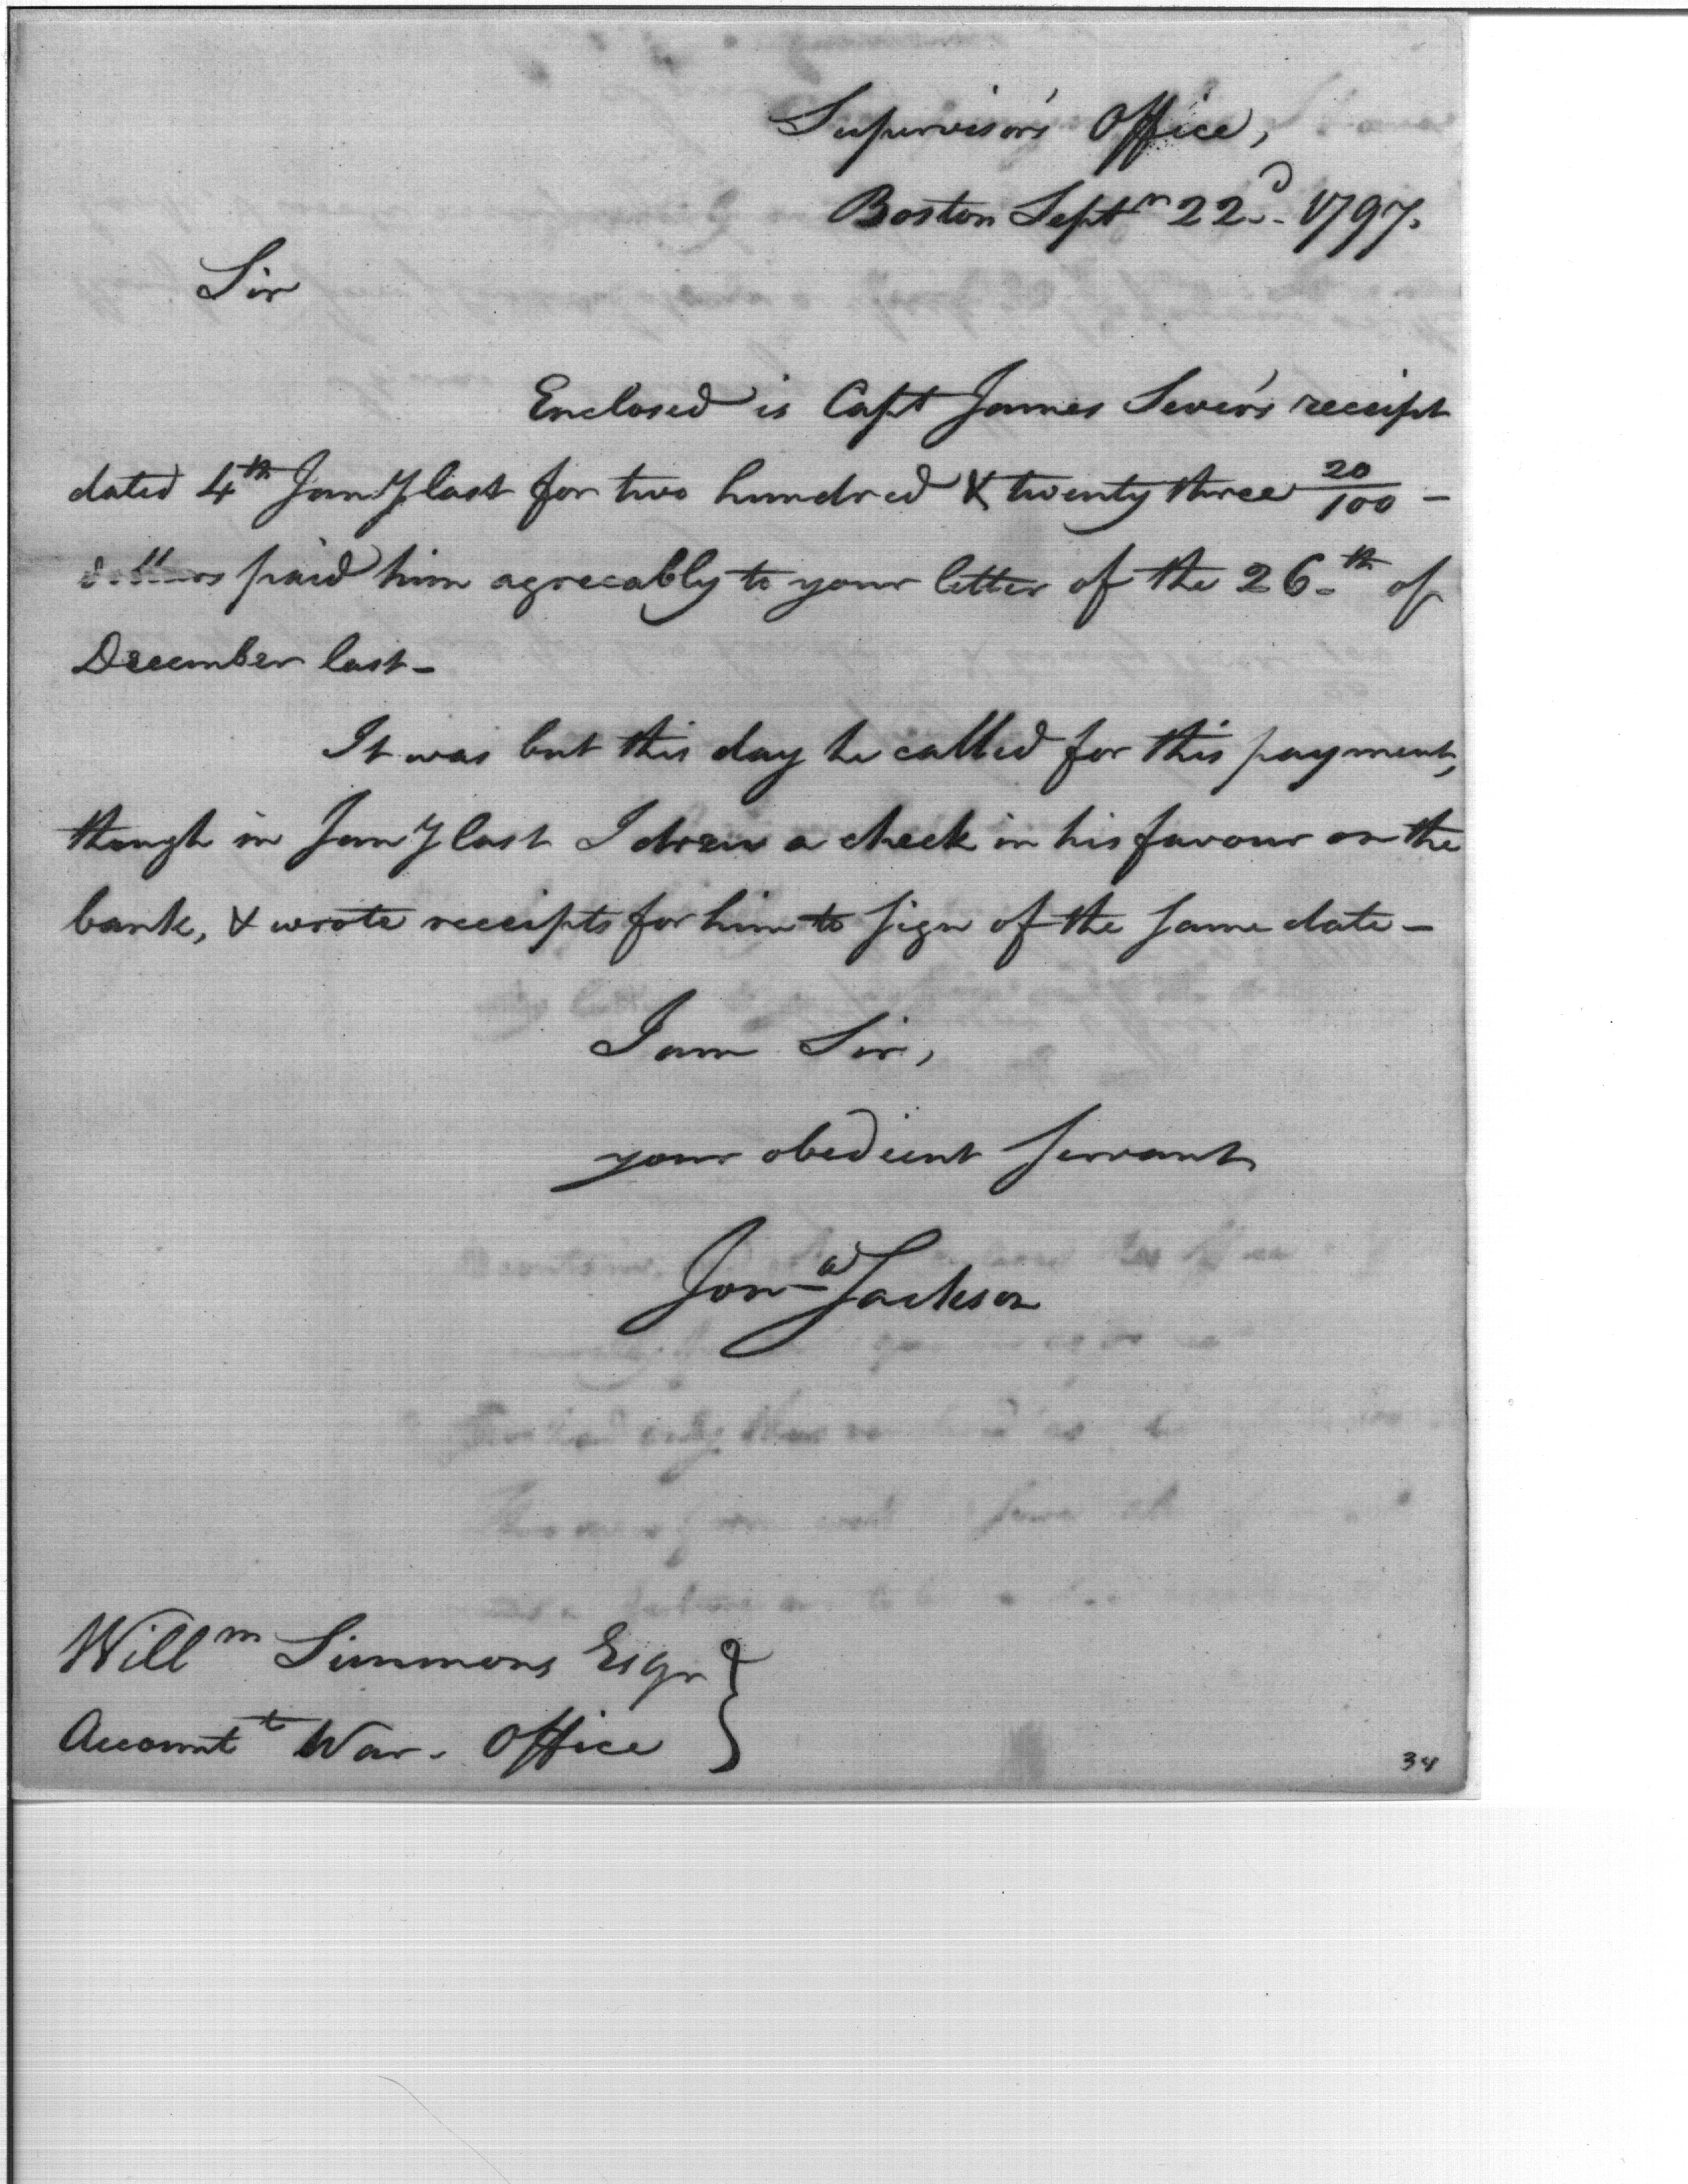 Supervisor's Office,
Boston Septr 22d. 1797.
Sir
Enclosed is Capt James Sever's receipt
dated 4th Jany last for two hundred & twenty three 20/100 -
dollars paid him agreeably to your letter of the 26th of
December last -
It was but this day he called for this payment,
though in Jany last I drew a check in his favour on the
bank, & wrote receipts for him to sign of the same date -
I am Sir,
your obedient servant
Jona Jackson
Willm Simmons Esqr
Accountt War. Office
34